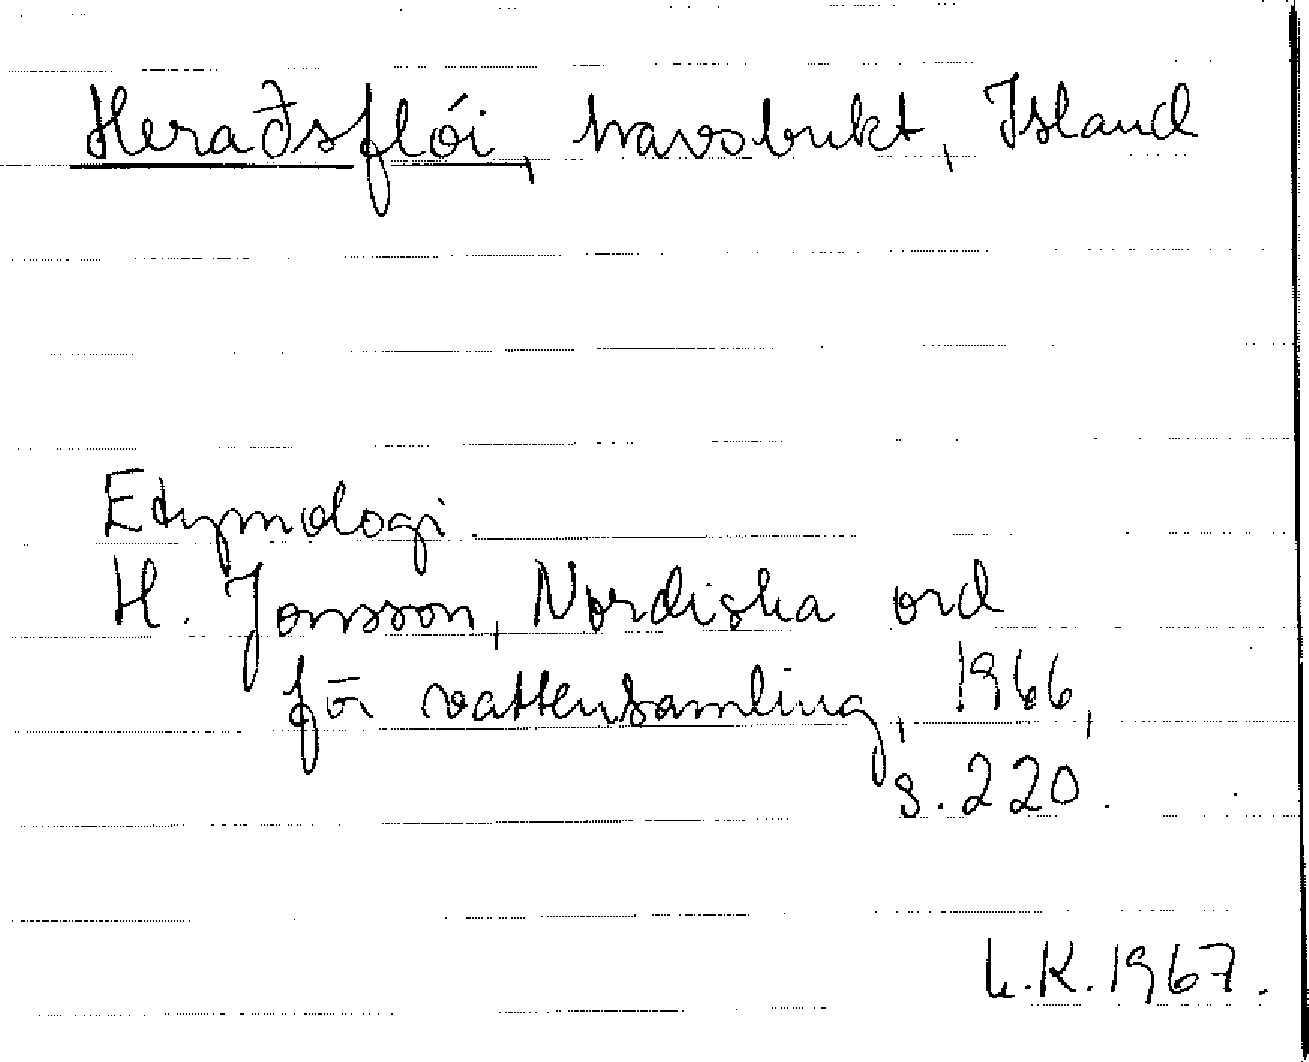 Heraðsflói, havsbukt, Island
Etymologi
H. Jonsson, Nordiska ord
för vattensamling, 1966,
s. 220.
L.K. 1967.